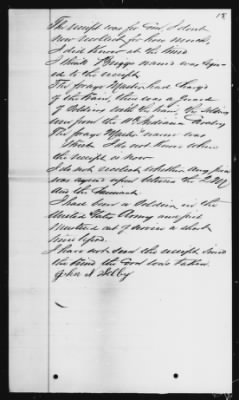 18
The receipt was for Corn I dont
now recollect for how much,
I did know at the time
I think Briggs name was sign-
ed to the receipt.
The forage Master had charge
of the train, there was a guard
of Soldiers with the train, the Soldiers
were from the 11th Indiana Cavalry
The forage Master name was
I do not know where
the receipt is now
I do not recollect whether any price
was agreed upon between the
and the Claimant.
I had been a Soldier in the
United States Army and just
Mustered out of service a short
time before.
I have not seen the receipt since
the time the Corn was taken.
John N